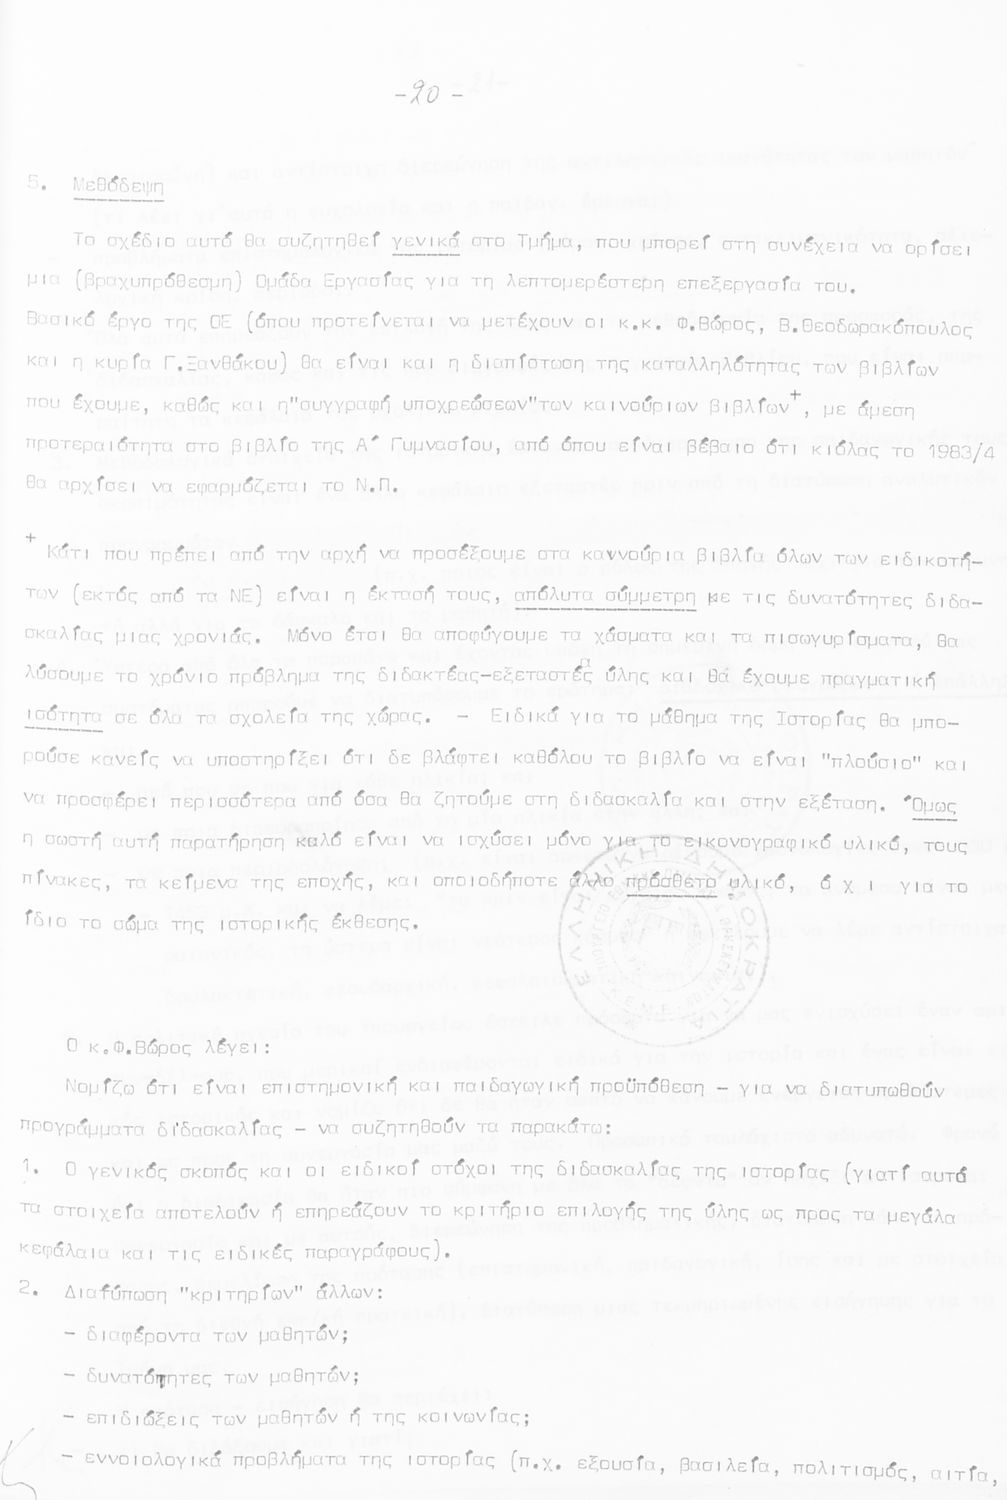 -20-
5. Μεθόδεψη
Το σχέδιο αυτό θα συζητηθεί γενικά στο Τμήμα, που μπορεί στη συνέχεια να ορίσει
μια (βραχυπρόθεσμη) Ομάδα Εργασίας για τη λεπτομερέστερη επεξεργασία του.
Βασικό έργο της ΟΕ (όπου προτείνεται να μετέχουν οι κ.κ. Φ.Βώρος, Β.Θεοδωρακόπουλος
και η κυρία Γ.Ξανθάκου) θα είναι και η διαπίστωση της καταλληλότητας των βιβλίων
που έχουμε, καθώς και η"συγγραφή υποχρεώσεων"των καινούριων βιβλίων+, με άμεση
προτεραιότητα στο βιβλίο της Α΄ Γυμνασίου, από όπου είναι βέβαιο ότι κιόλας το 1983/4
θα αρχίσει να εφαρμόζεται το Ν.Π.
+ Κάτι που πρέπει από την αρχή να προσέξουμε στα καινούρια βιβλία όλων των ειδικοτή-
των (εκτός από τα ΝΕ) είναι η έκτασή τους, απόλυτα σύμμετρη με τις δυνατότητες διδα-
σκαλίας μιας χρονιάς. Μόνο έτσι θα αποφύγουμε τα χάσματα και τα πισωγυρίσματα, θα
λύσουμε το χρόνιο πρόβλημα της διδακτέας-εξεταστέας ύλης και θά έχουμε πραγματική
ισότητα σε όλα τα σχολεία της χώρας. - Ειδικά για το μάθημα της Ιστορίας θα μπο-
ρούσε κανείς να υποστηρίξει ότι δε βλάφτει καθόλου το βιβλίο να είναι "πλούσιο" και
να προσφέρει περισσότερα από όσα θα ζητούμε στη διδασκαλία και στην εξέταση. Όμως
η σωστή αυτή παρατήρηση καλό είναι να ισχύσει μόνο για το εικονογραφικό υλικό, τους
πίνακες, τα κείμενα της εποχής, και οποιοδήποτε άλλο πρόσθετο υλικό, ό χ ι για το
ίδιο το σώμα της ιστορικής έκθεσης.
ΕΛΛΗΝΙΚΗ ΔΗΜΟΚΡΑΤΙΑ
Ο κ.Φ.Βώρος λέγει:
Νομίζω ότι είναι επιστημονική και παιδαγωγική προϋπόθεση - για να διατυπωθούν
προγράμματα διδασκαλίας - να συζητηθούν τα παρακάτω:
1. Ο γενικός σκοπός και οι ειδικοί στόχοι της διδασκαλίας της ιστορίας (γιατί αυτά
τα στοιχεία αποτελούν ή επηρεάζουν το κριτήριο επιλογής της ύλης ως προς τα μεγάλα
κεφάλαια και τις ειδικές παραγράφους).
2. Διατύπωση "κριτηρίων" άλλων:
- διαφέροντα των μαθητών;
- δυνατότητες των μαθητών;
- επιδιώξεις των μαθητών ή της κοινωνίας;
- εννοιολογικά προβλήματα της ιστορίας (π.χ. εξουσία, βασιλεία, πολιτισμός, αιτία,